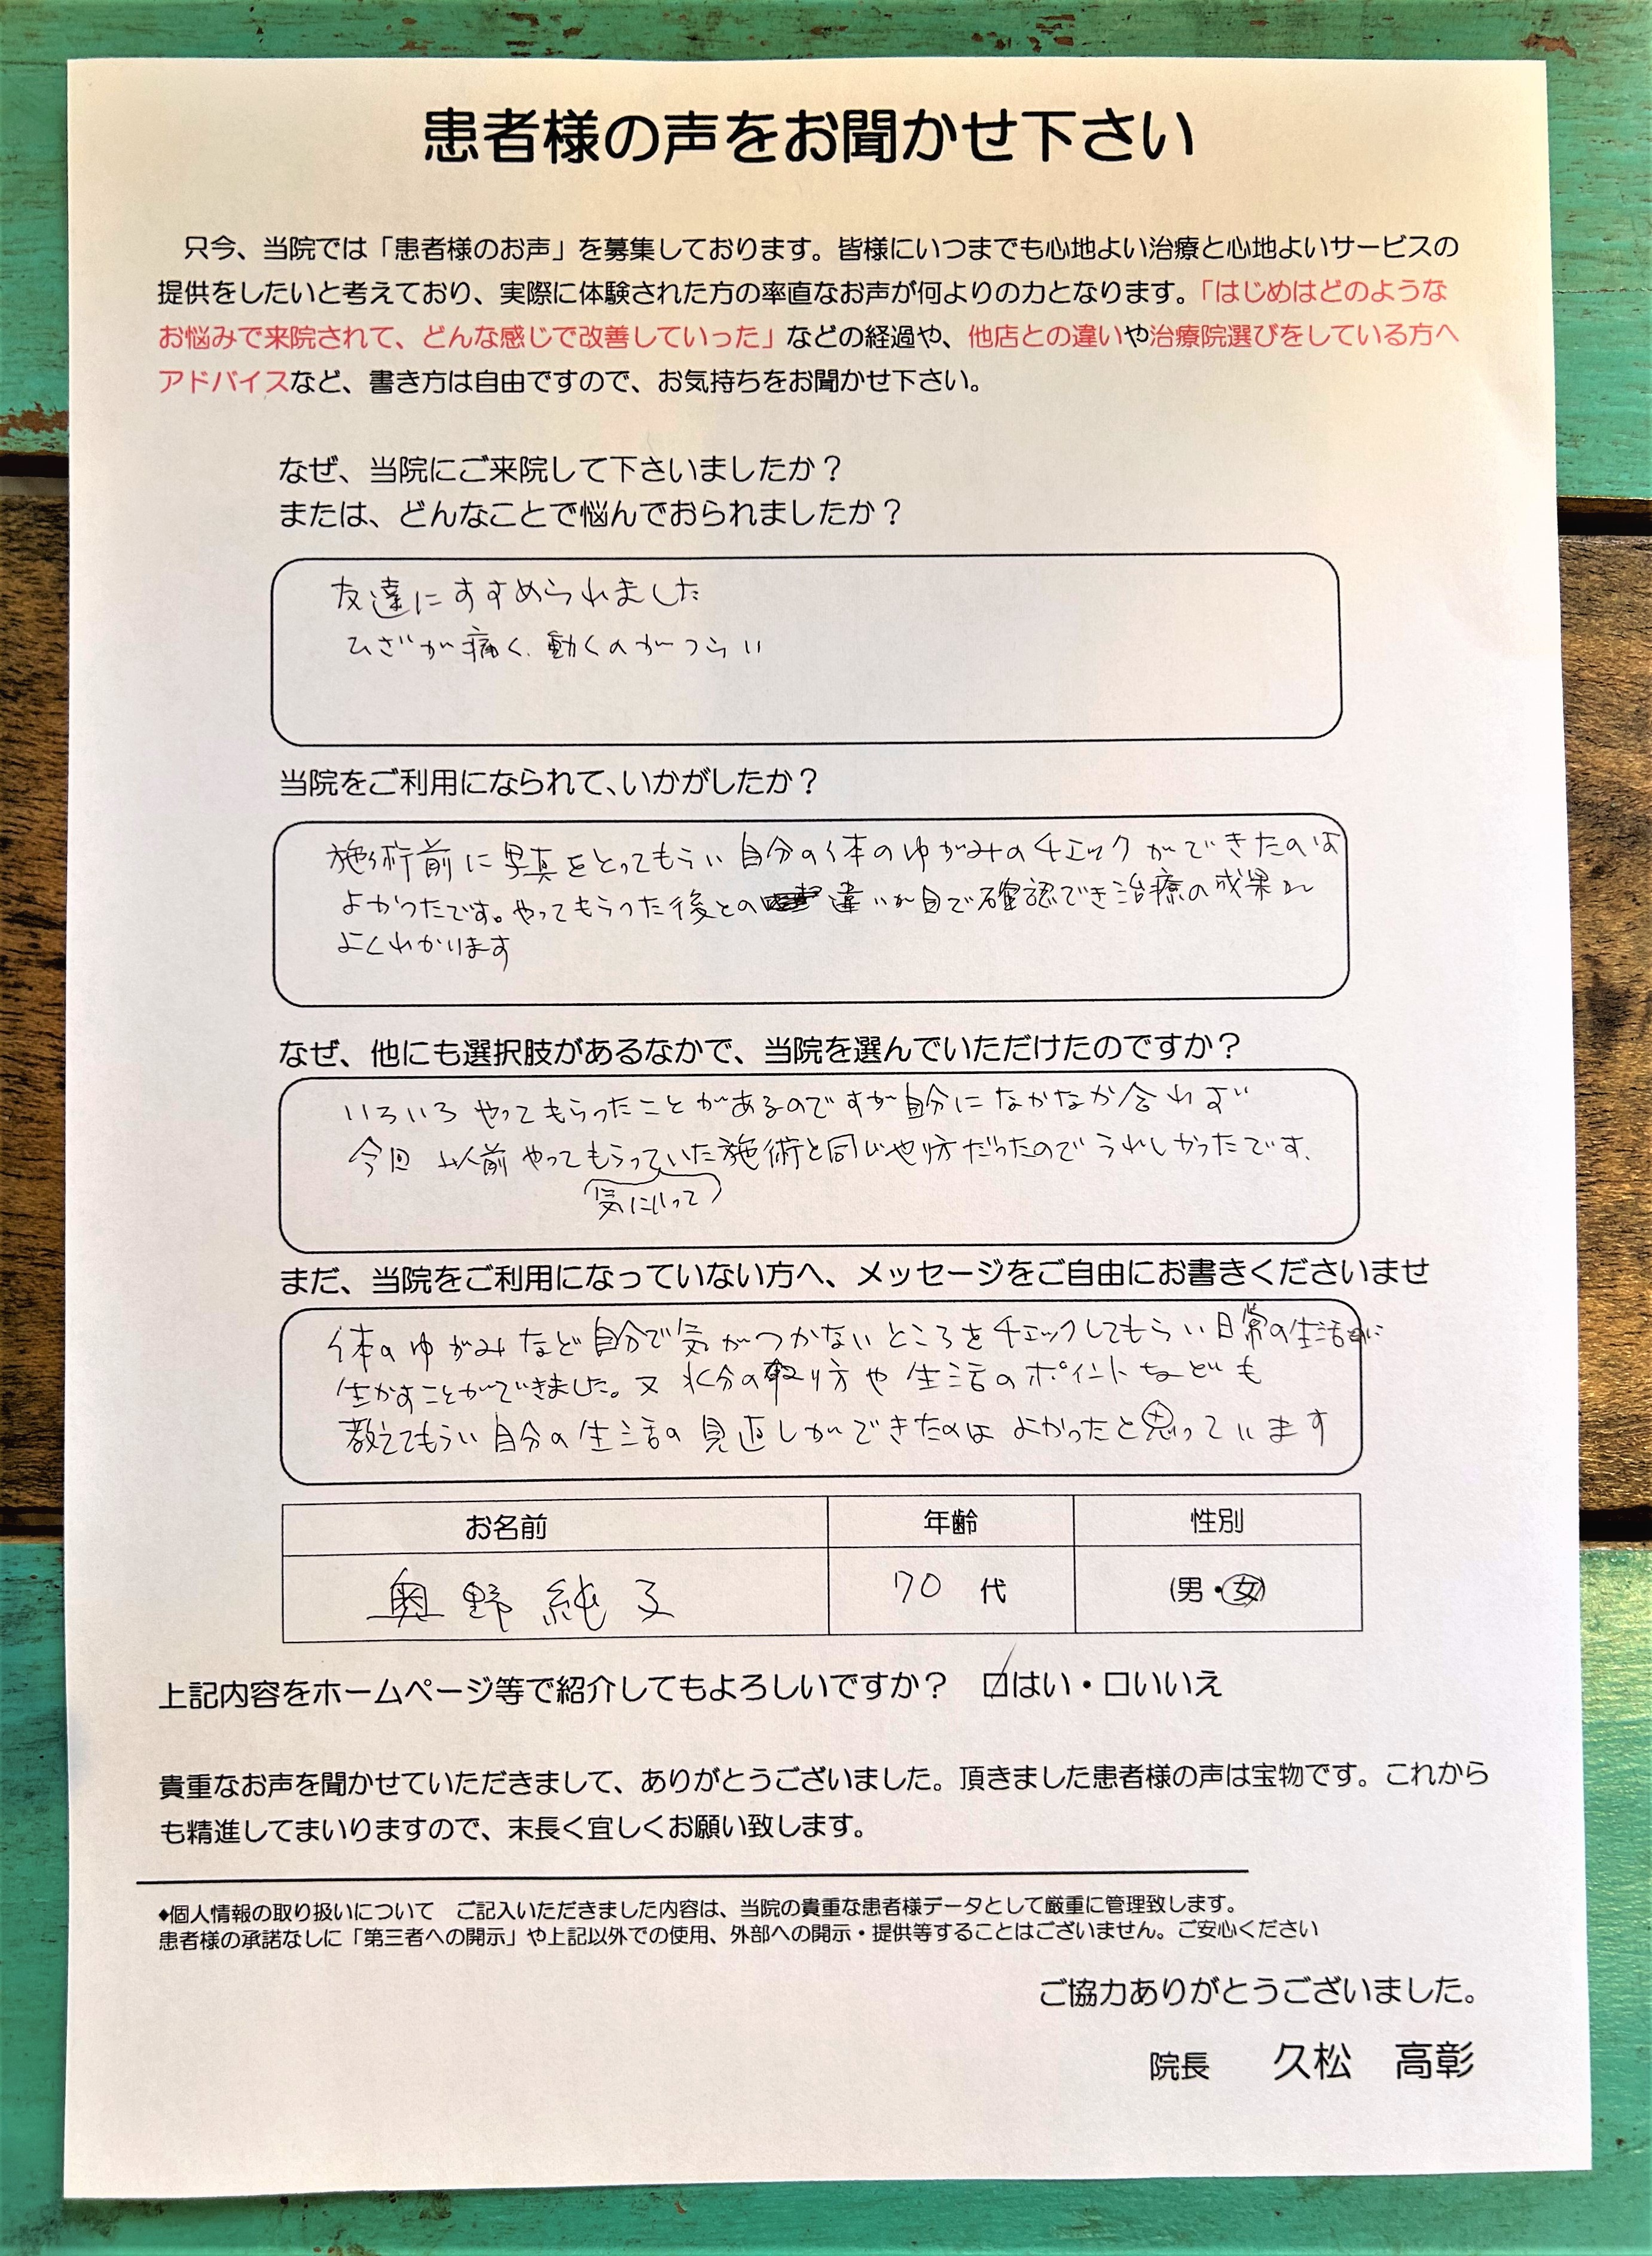 患者様の声をお聞かせ下さい
只今、当院では「患者様のお声」を募集しております。皆様にいつまでも心地よい治療と心地よいサービスの
提供をしたいと考えており、実際に体験された方の率直なお声が何よりの力となります。「はじめはどのような
お悩みで来院されて、どんな感じで改善していった」などの経過や、他店との違いや治療院選びをしている方へ
アドバイスなど、書き方は自由ですので、お気持ちをお聞かせ下さい。
なぜ、当院にご来院して下さいましたか？
または、どんなことで悩んでおられましたか？
友達にすすめられました
ひざが痛く、動くのがつらい
当院をご利用になられて、いかがしたか？
施術前に写真をとってもらい自分の体のゆがみのチェックができたのは
よかったです。やってもらった後との違いが目で確認でき治療の成果が
よくわかります
なぜ、他にも選択肢があるなかで、当院を選んでいただけたのですか？
いろいろやってもらったことがあるのですが自分になかなか合わず
今回以前やってもらっていた施術と同じやり方だったのでうれしかったです、
気にいって
まだ、当院をご利用になっていない方へ、メッセージをご自由にお書きくださいませ
体のゆがみなど自分で気がつかないところをチェックしてもらい日常の生活に
生かすことができました。又水分の取り方や生活のポイントなども
教えてもらい自分の生活の見直しができたのはよかったと思っています
お名前 年齢 性別
奥野純子 70 代 (男・女)
上記内容をホームページ等で紹介してもよろしいですか？ ☑はい・□いいえ
貴重なお声を聞かせていただきまして、ありがとうございました。頂きました患者様の声は宝物です。これから
も精進してまいりますので、末長く宜しくお願い致します。
◆個人情報の取り扱いについて ご記入いただきました内容は、当院の貴重な患者様データとして厳重に管理致します。
患者様の承諾なしに「第三者への開示」や上記以外での使用、外部への開示・提供等することはございません。ご安心ください
ご協力ありがとうございました。
院長 久松 高彰